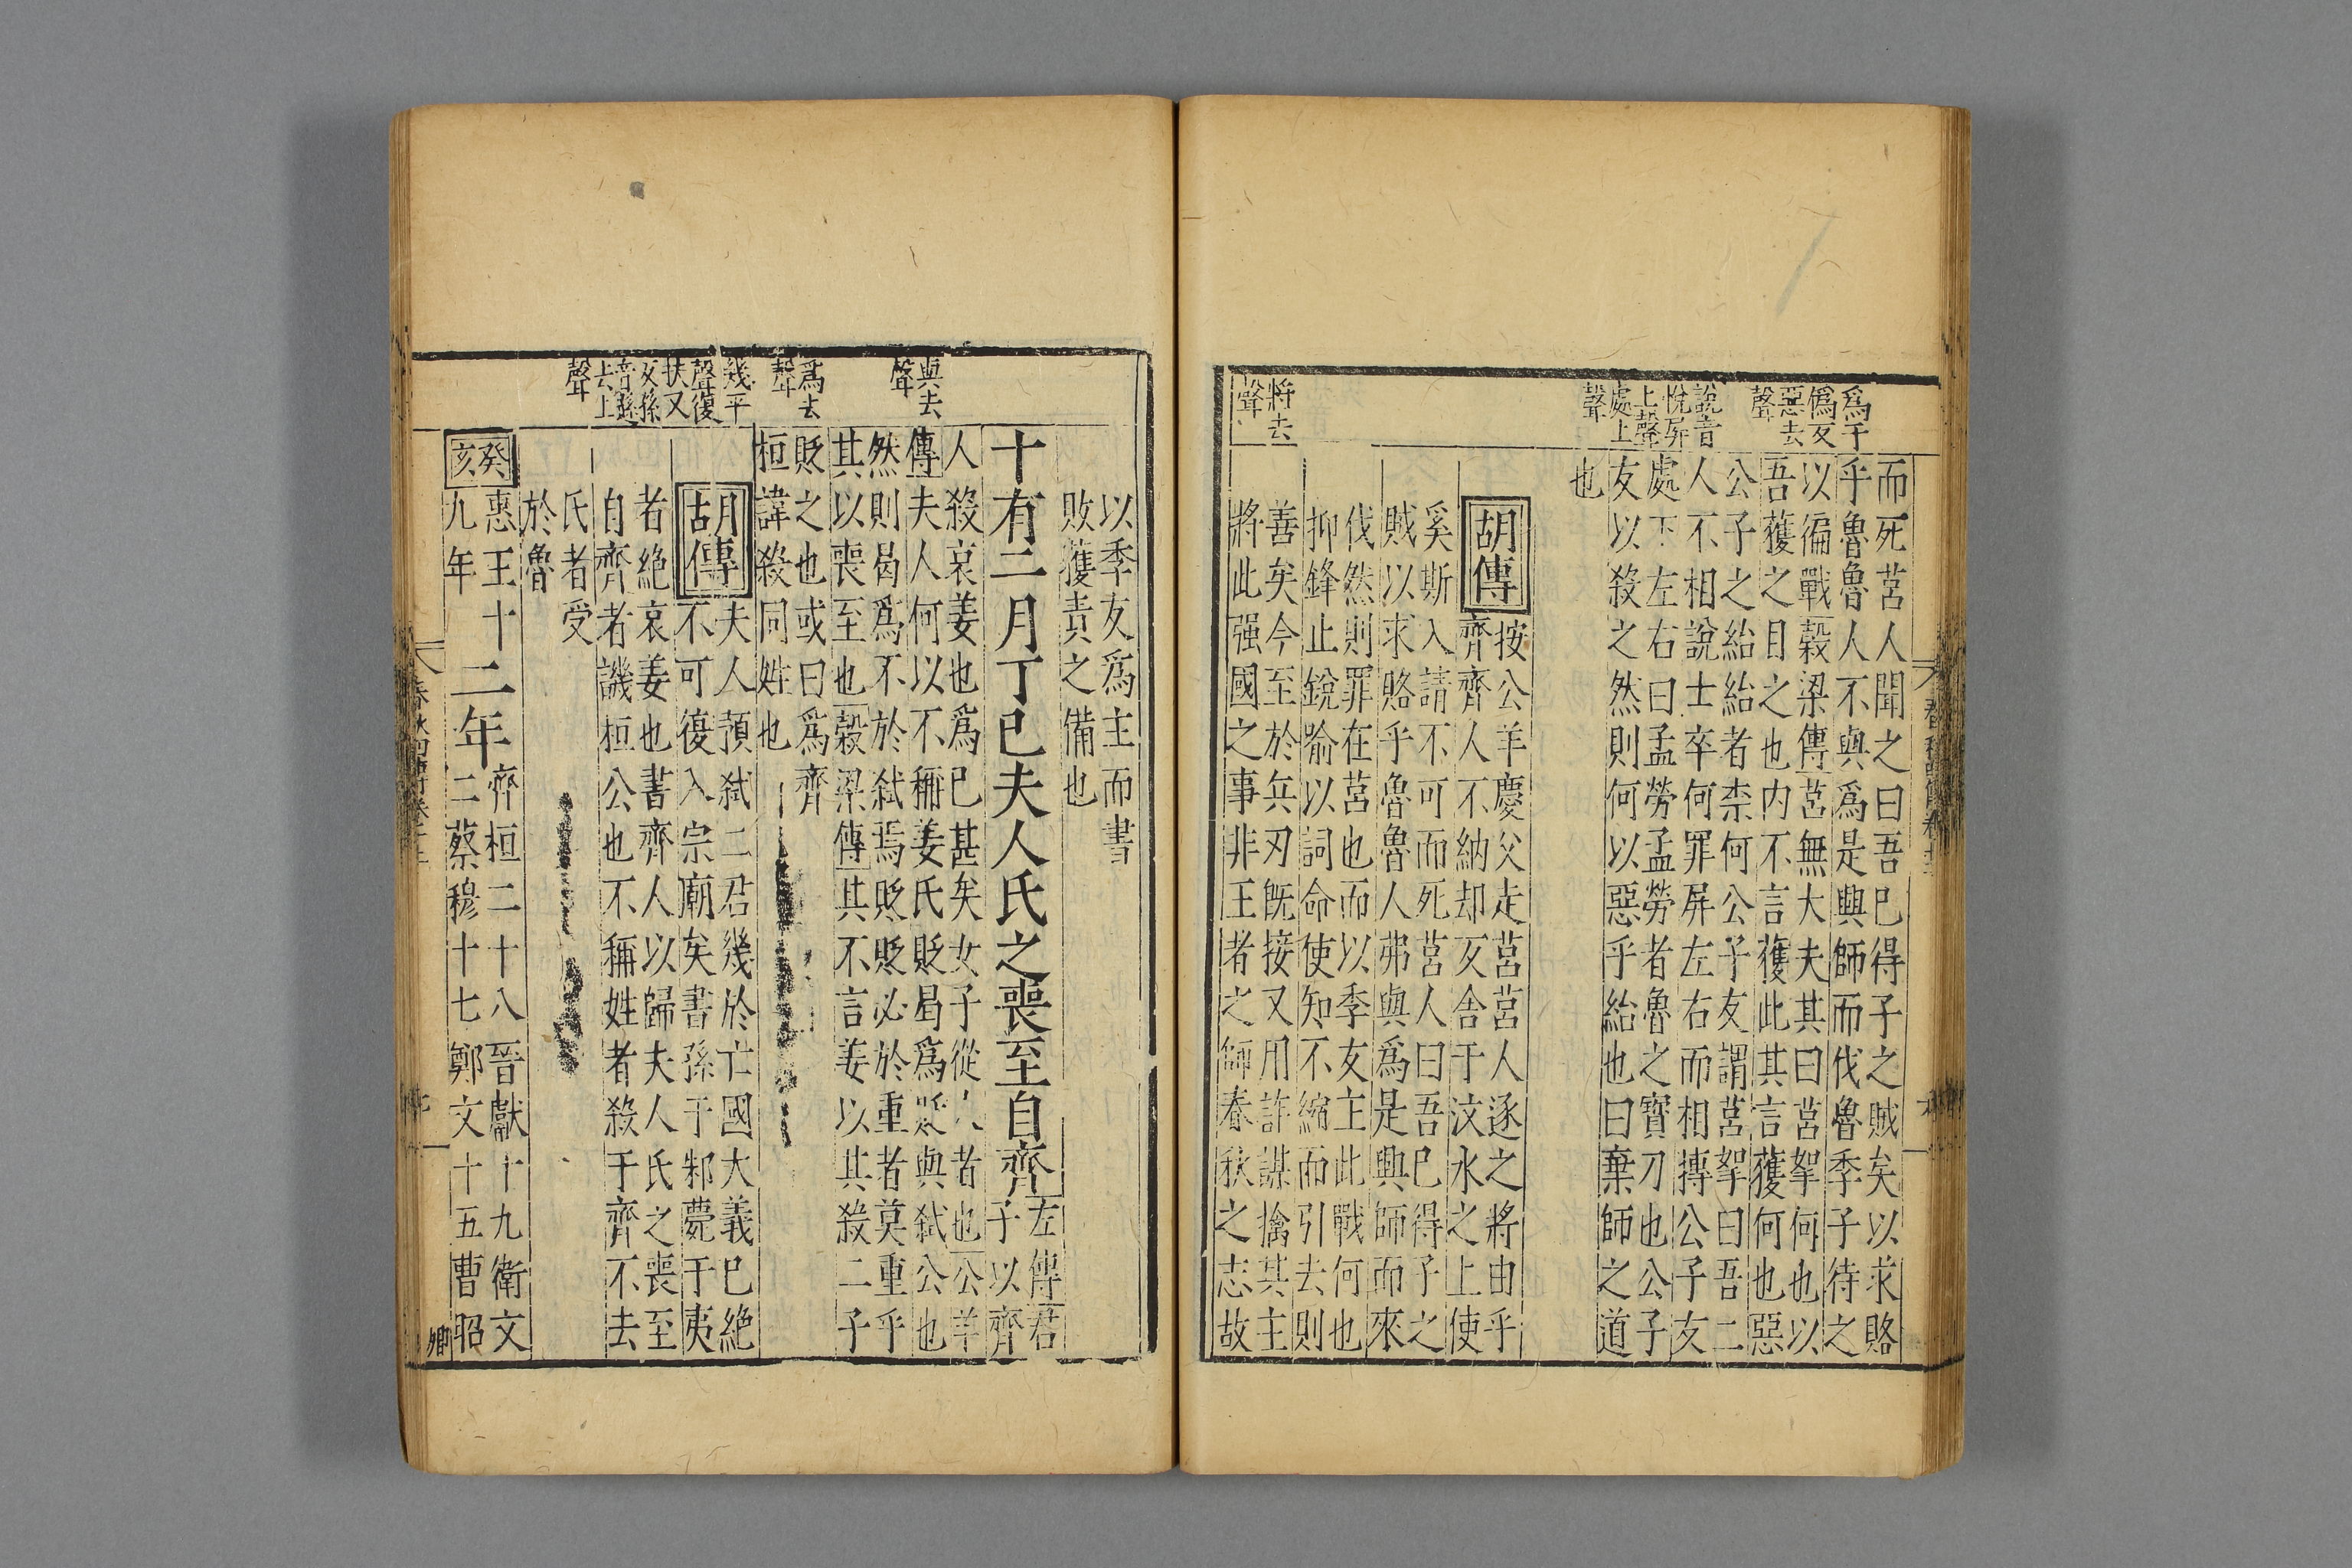 為于
偽反
惡去
聲
說音
悅屏
上聲
處上
聲
將去
聲
而死莒人聞之曰吾已得子之賊矣以求賂
乎魯魯人不與爲是興師而伐魯季子待之
以徧戰穀梁傳莒無大夫其曰莒挐何也以
吾獲之目之也内不言獲此其言獲何也惡
公子之紿紿者柰何公子友謂莒挐曰吾二
人不相說士卒何罪屏左右而相搏公子友
處下左右曰孟勞孟勞者魯之寶刀也公子
友以殺之然則何以惡乎紿也曰棄師之道
也
胡傳
按公羊慶父走莒莒人逐之將由乎
齊齊人不納却反舍于汶水之上使
奚斯入請不可而死莒人曰吾已得子之
賊以求賂乎魯魯人弗與爲是興師而來
伐然則罪在莒也而以季友主此戰何也
抑鋒止銳喻以詞命使知不縮而引去則
善矣今至於兵刃旣接又用詐謀擒其主
將此强國之事非王者之師春秋之志故
與去
聲
爲去
聲
幾平
聲復
扶又
反孫
音遜
去上
聲
以季友爲主而書
敗獲責之備也
十有二月丁巳夫人氏之喪至自齊
左傳君
子以齊
人殺哀姜也爲已甚矣女子從人者也公羊
傳夫人何以不稱姜氏貶曷爲貶與弒公也
然則曷爲不於弒焉貶貶必於重者莫重乎
其以喪至也穀梁傳其不言姜以其殺二子
貶之也或曰爲齊
桓諱殺同姓也
胡傳
夫人預弒二君幾於亡國大義已絶
不可復入宗廟矣書孫于邾薨于夷
者絶哀姜也書齊人以歸夫人氏之喪至
自齊者譏桓公也不稱姓者殺于齊不去
氏者受
於魯
癸亥
惠王十
九年
二年
齊桓二十八晉獻十九衛文
二蔡穆十七鄭文十五曹昭